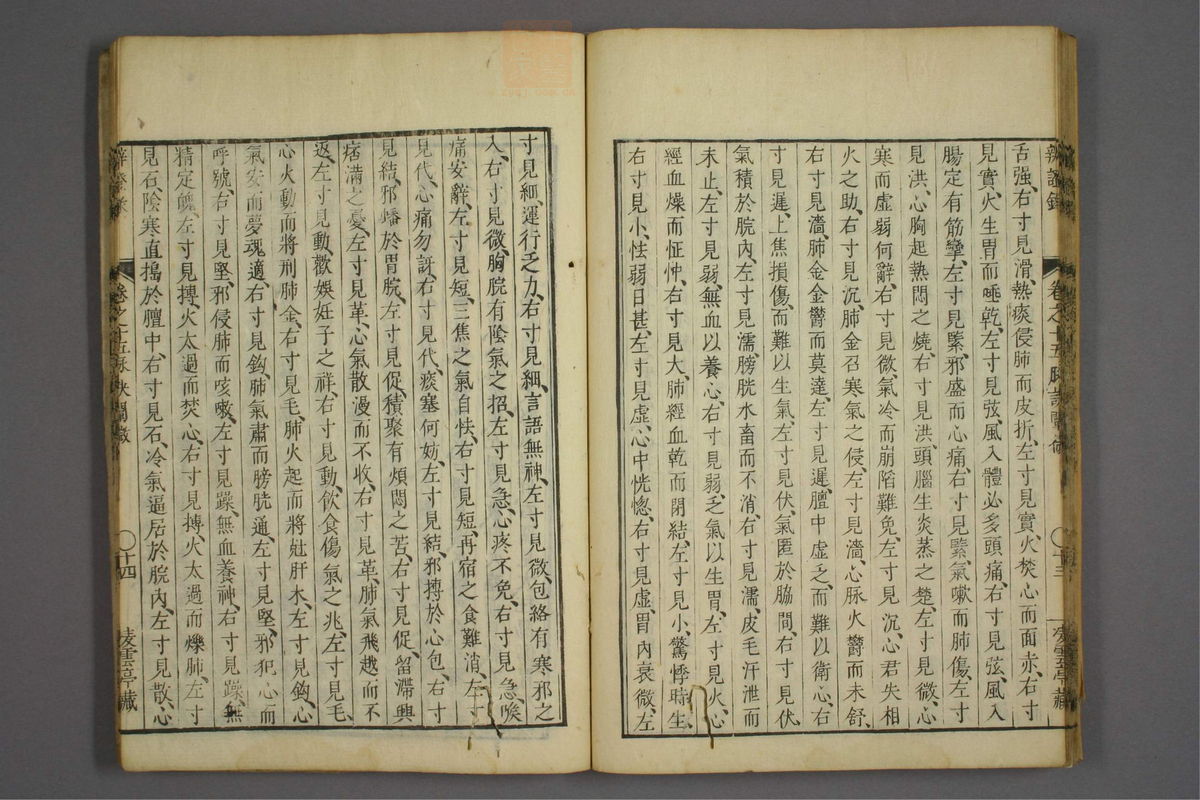 辨證錄 卷之十五脉訣闡微 十三 凌雲亭藏
舌强、右寸見滑、熱痰侵肺而皮折、左寸見實、火焚心而面赤、右寸
見實、火生胃而唾乾、左寸見弦、風入體必多頭痛、右寸見弦、風入
腸定有筋攣、左寸見緊、邪盛而心痛、右寸見緊、氣嗽而肺傷、左寸
見洪、心胸起熱悶之燒、右寸見洪、頭腦生炎蒸之楚、左寸見微、心
寒而虛弱何辭、右寸見微、氣冷而崩陷難免、左寸見沉、心君失相
火之助、右寸見沉、肺金召寒氣之侵、左寸見濇、心脉火鬱而未舒、
右寸見濇、肺金金鬱而莫達、左寸見遲、膻中虛乏、而難以衛心、右
寸見遲、上焦損傷、而難以生氣、左寸見伏、氣匿於脇間、右寸見伏、
氣積於脘內、左寸見濡、膀胱水畜而不消、右寸見濡、皮毛汗泄而
未止、左寸見弱、無血以養心、右寸見弱、乏氣以生胃、左寸見火、心
經血燥而怔忡、右寸見大、肺經血乾而閉結、左寸見小、驚悸時生、
右寸見小、怯弱日甚、左寸見虛、心中恍惚、右寸見虛、胃內衰微、左
寸見細、運行乏力、右寸見細、言語無神、左寸見微、包絡有寒邪之
入、右寸見微、胸脘有陰氣之招、左寸見急、心疼不免、右寸見急、喉
痛安辭、左寸見短、三焦之氣自怯、右寸見短、再宿之食難消、左寸
見代、心痛勿訝、右寸見代、痰塞何妨、左寸見結、邪搏於心包、右寸
見結、邪蟠於胃脘、左寸見促、積聚有煩悶之苦、右寸見促、留滯興
痞滿之憂、左寸見革、心氣散漫而不收、右寸見革、肺氣飛越而不
返、左寸見動、歡娛姙子之祥、右寸見動、飲食傷氣之兆、左寸見毛、
心火動而將刑肺金、右寸見毛、肺火起而將尅肝木、左寸見鈎、心
氣安而夢魂適、右寸見鈎、肺氣肅而膀胱通、左寸見堅、邪犯心而
呼號、右寸見堅、邪侵肺而咳嗽、左寸見躁、無血養神、右寸見躁、無
精定魄、左寸見搏、火太過而焚心、右寸見搏、火太過而爍肺、左寸
見石、陰寒直搗於膻中、右寸見石、冷氣逼居於脘內、左寸見散、心
辨證錄 卷之十五脉訣闡微 十四 凌雲亭藏